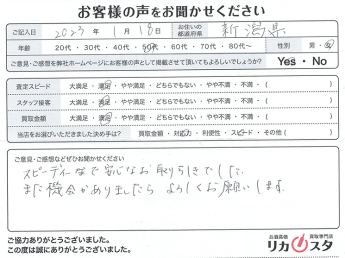 お客様の声をお聞かせください
ご記入日 2023年 1月 18日 お住いの都道府県 新潟県
年齢 20代・30代・40代・50代・60代・70代・80代〜 性別 男・女
ご意見・ご感想を弊社ホームページにお客様の声として掲載させて頂いてもよろしいでしょうか? Yes・No
査定スピード 大満足・満足・やや満足・どちらでもない・やや不満・不満・( )
スタッフ接客 大満足・満足・やや満足・どちらでもない・やや不満・不満・( )
買取金額 大満足・満足・やや満足・どちらでもない・やや不満・不満・( )
当店をお選びいただきました決め手は? 買取金額・対応力・利便性・スピード・その他( )
ご意見・ご感想などぜひお聞かせください
スピーディーなで安心なお取り引きでした。
また機会がありましたらよろしくお願いします。
ご協力ありがとうございました。
この度は誠にありがとうございました。
お酒高価買取専門店
リカスタ